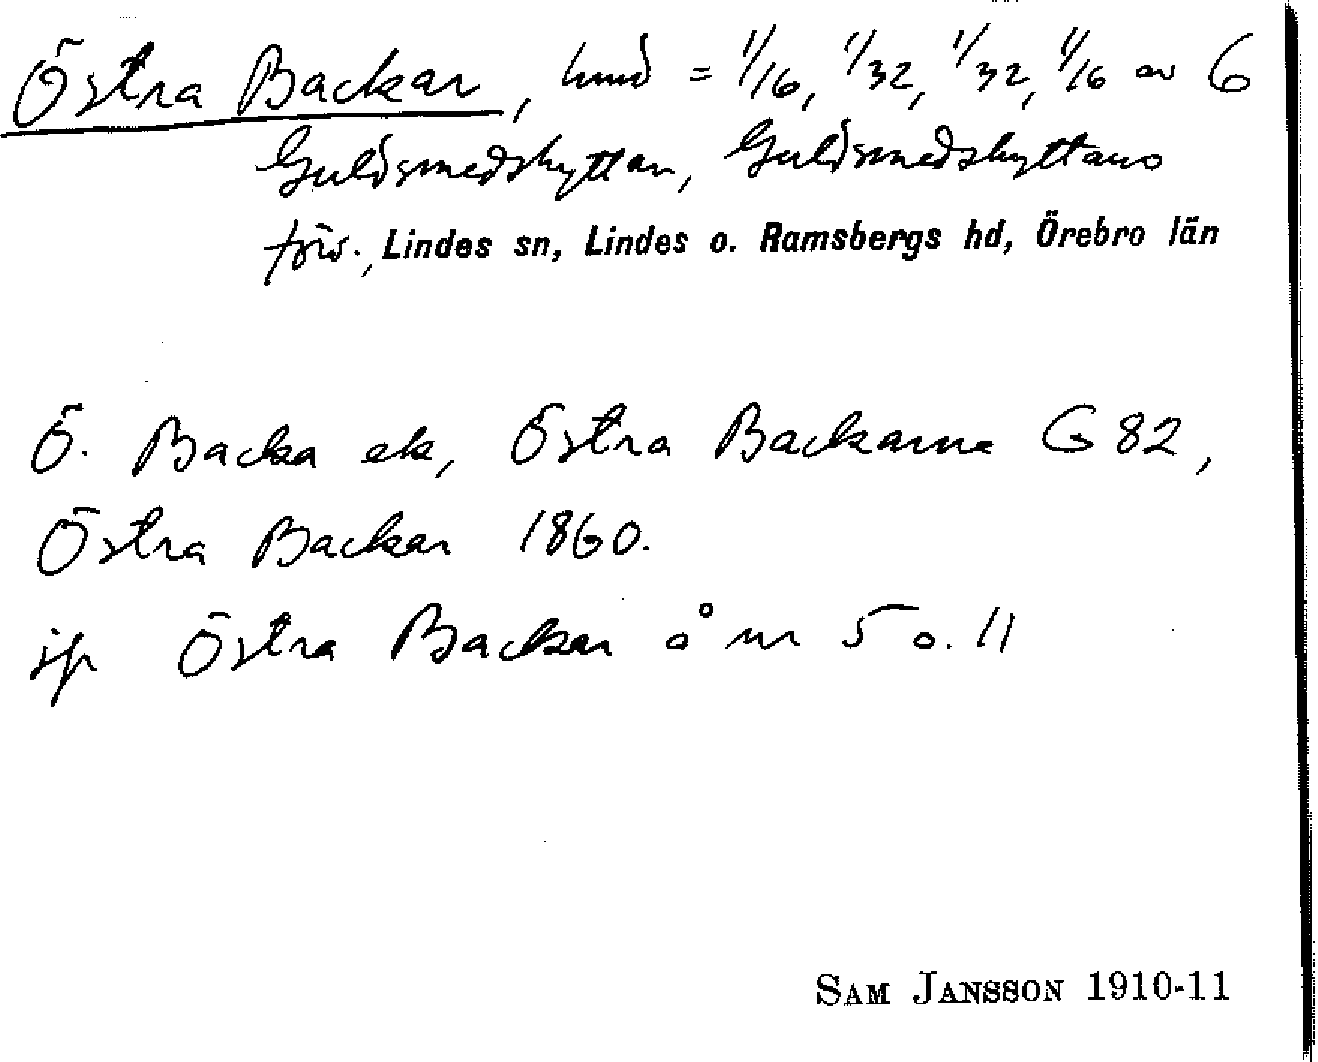 Östra Backar, hmd = 1/16, 1/32, 1/32, 1/16 av 6
Guldsmedshyttan, Guldsmedshyttans
förs., Lindes sn, Lindes o. Ramsbergs hd, Örebro län
Ö. Backa ek, Östra Backarne G 82,
Östra Backar 1860.
jfr Östra Backar å nr 5 o. 11
SAM JANSSON 1910-11